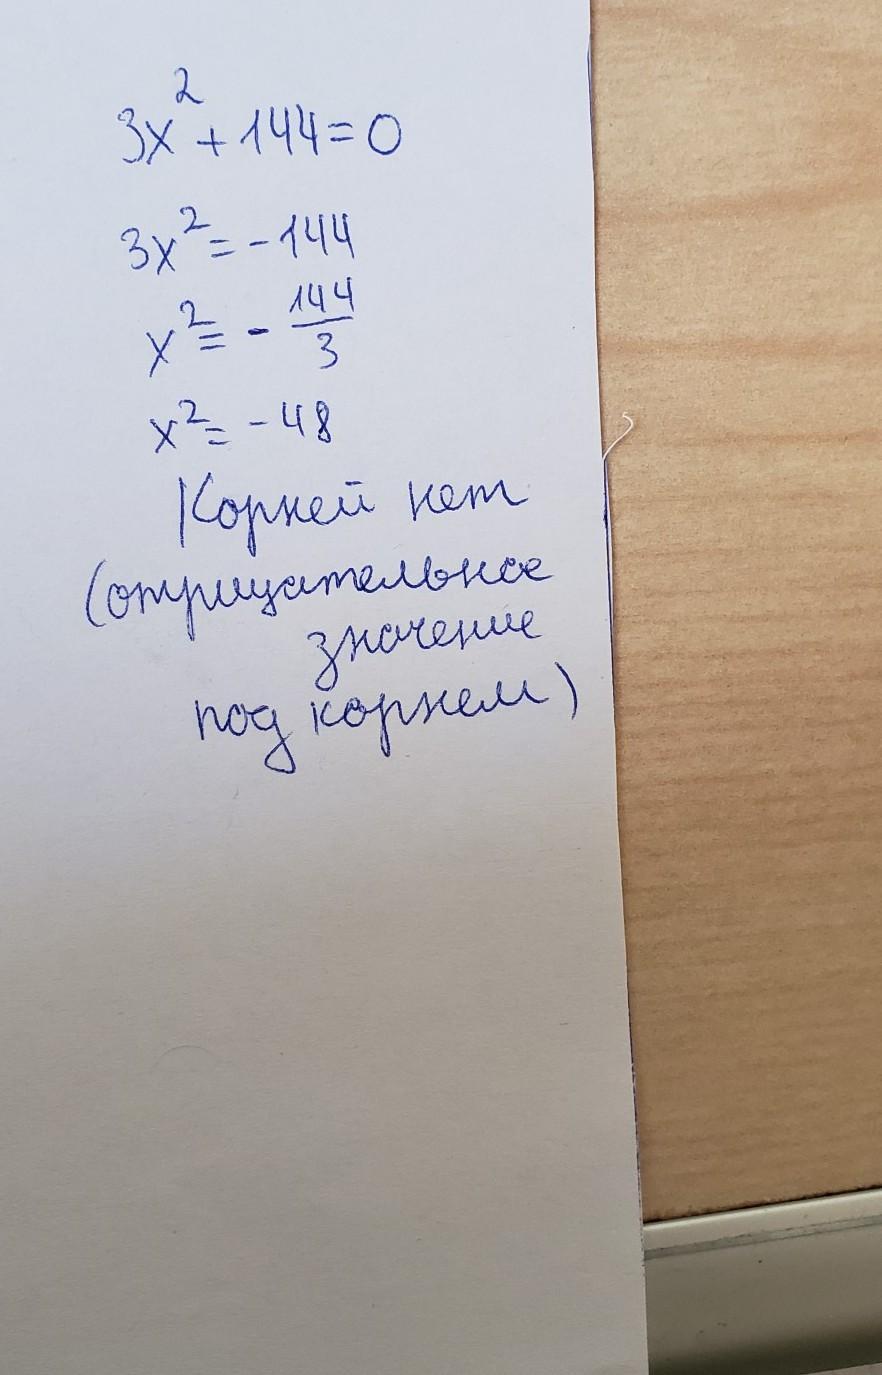 3x² + 144 = 0
3x² = - 144
x² = - 144/3
x² = - 48
Корней нет
(отрицательное
значение
под корнем)